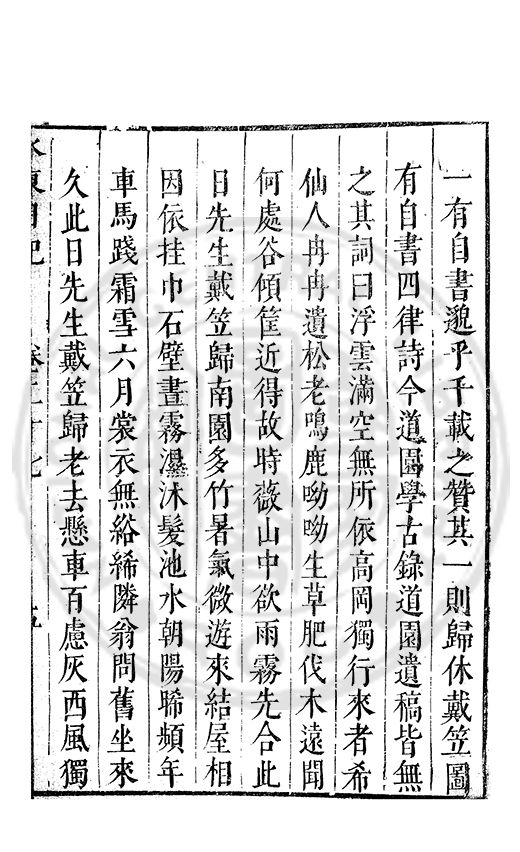 一有自書邈乎千載之贊其一則歸休戴笠圖
有自書四律詩今道園學古錄道園遺稿皆無
之其詞曰浮雲滿空無所依高岡獨行來者希
仙人冉冉遺松老鳴鹿呦呦生草肥伐木遠聞
何處谷傾筐近得故時薇山中欲雨霧先合此
日先生戴笠歸南園多竹暑氣微遊來結屋相
因依挂巾石壁晝霧濕沐髮池水朝陽晞頻年
車馬踐霜雪六月裳衣無綌絺隣翁問舊坐來
久此日先生戴笠歸老去懸車百慮灰西風獨
水東日記
卷三十七
五